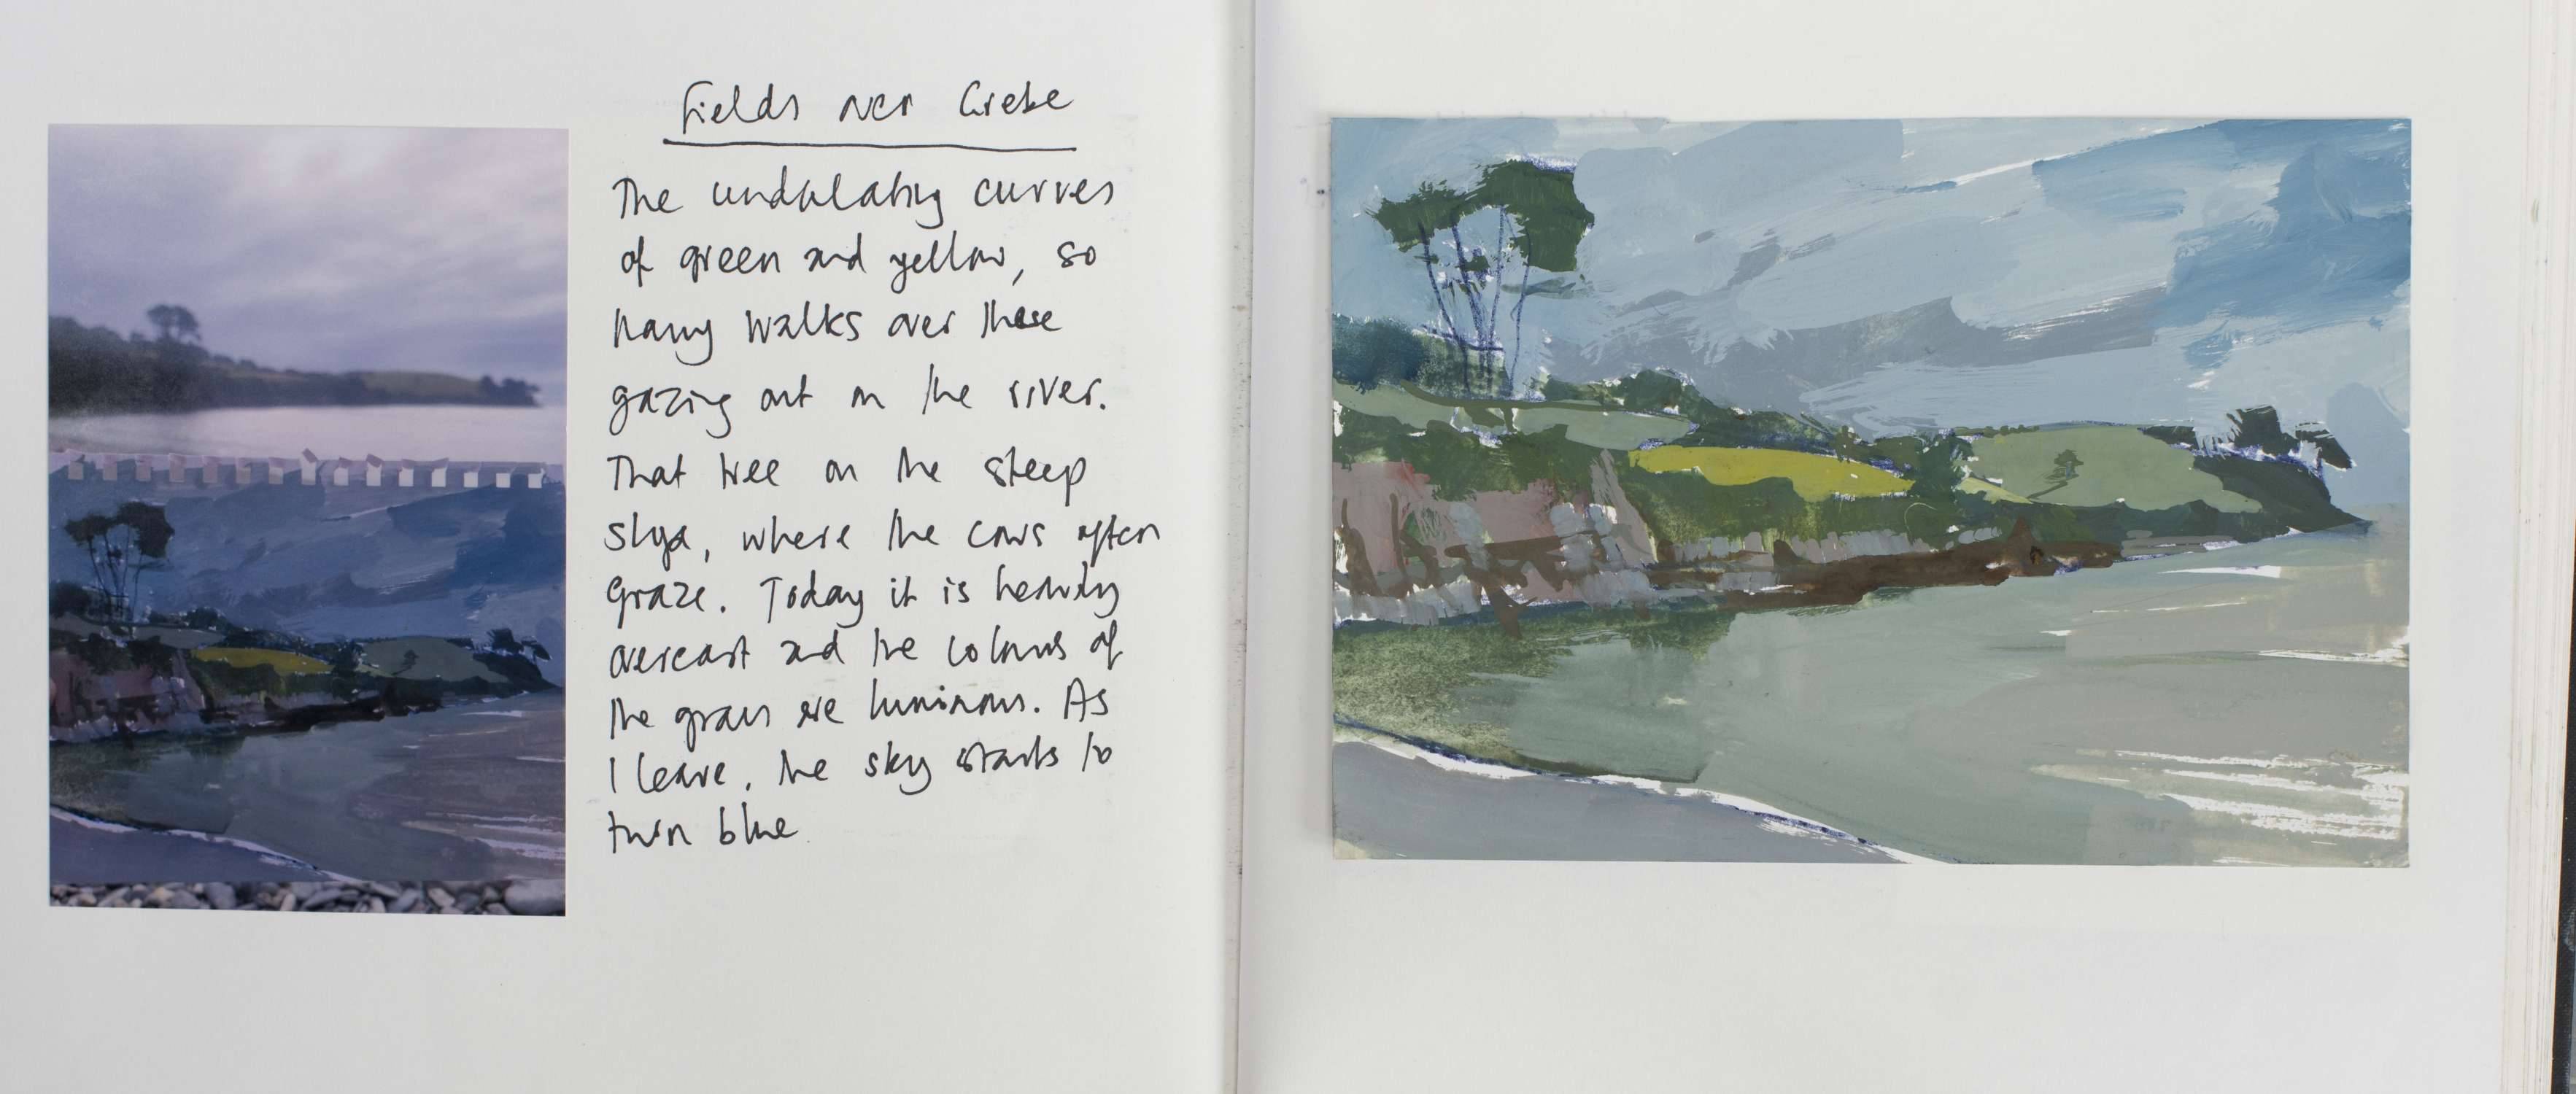 Fields over Grebe
The undulating curves
of green and yellow, so
many walks over these
gazing out on the river.
That tree on the steep
slope, where the cows often
graze. Today it is heavily
overcast and the colours of
the grass are luminous. As
I leave, the sky starts to
turn blue.